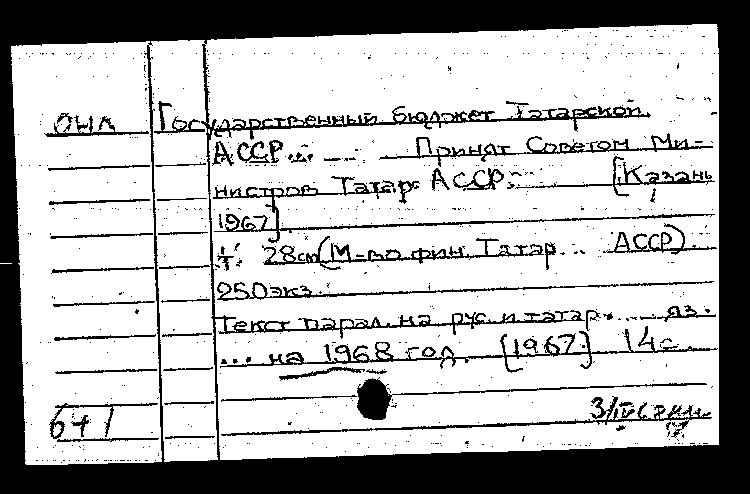 Государственный бюджет Татарской
АССР... Принят Советом Ми-
нистров Татар. АССР. [Казань
1967].
28cm (М-во фин. Татар... АССР).
250 экз.
Текст парал. на рус. и татар. ... яз.
... на 1968 год. [1967] 14с.
641